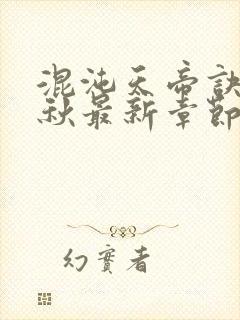 混沌天帝訣
秋最新章節
幻實者